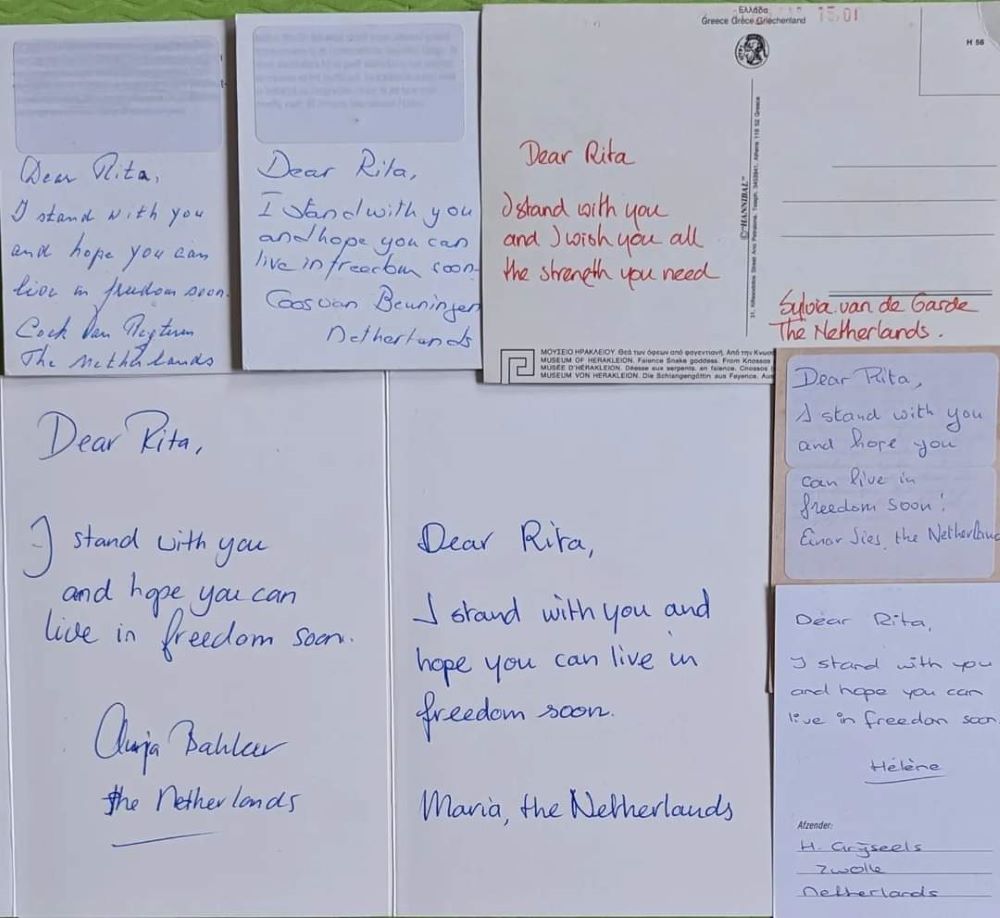 Dear Rita,
I stand with you
and hope you can
live in freedom soon.
Cock van
The Netherlands
Dear Rita,
I stand with you
and hope you can
live in freedom soon.
Coos van Beuningen
Netherlands
Ελλάδα
Greece Grèce Griechenland
15.01
H 56
Dear Rita
I stand with you
and I wish you all
the strength you need
© "HANNIBAL"
Sylvia van de Garde
The Netherlands.
ΜΟΥΣΕΙΟ ΗΡΑΚΛΕΙΟΥ. Θεά των όφεων από φαγεντιανή. Από την
MUSEUM OF HERAKLEION. Faience Snake goddess. From Knossos
MUSÉE D'HÉRAKLEION. Déesse aux serpents, en faience. Cnossos
MUSEUM VON HERAKLEION. Die Schlangengöttin aus Fayence.
Dear Rita,
I stand with you
and hope you
can live in
freedom soon!
Einar the
Dear Rita,
I stand with you
and hope you can
live in freedom soon.
Anja Bakker
the Netherlands
Dear Rita,
I stand with you and
hope you can live in
freedom soon.
Maria, the Netherlands
Dear Rita,
I stand with you
and hope you can
live in freedom soon.
Hélène
Afzender:
H. Grijseels
Zwolle
Netherlands